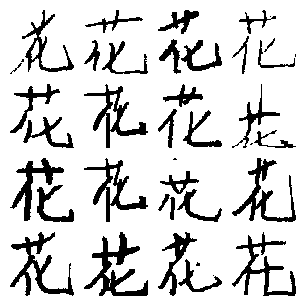 花花花花
花花花花
花花花花
花花花花